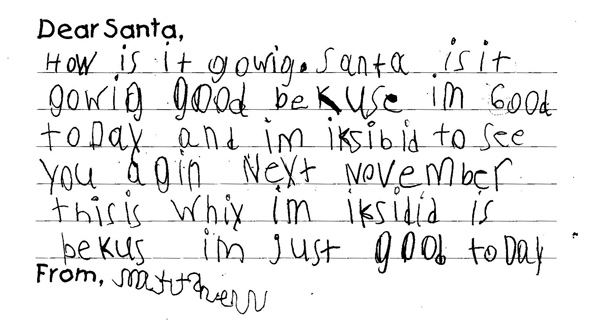 Dear Santa,
How is it gowig. Santa is it
gowig good bekuse im Good
toDay and im iksibid to see
you agin Next November
thisis whiy im iksidid is
bekus im just good toDay
From, Matthew